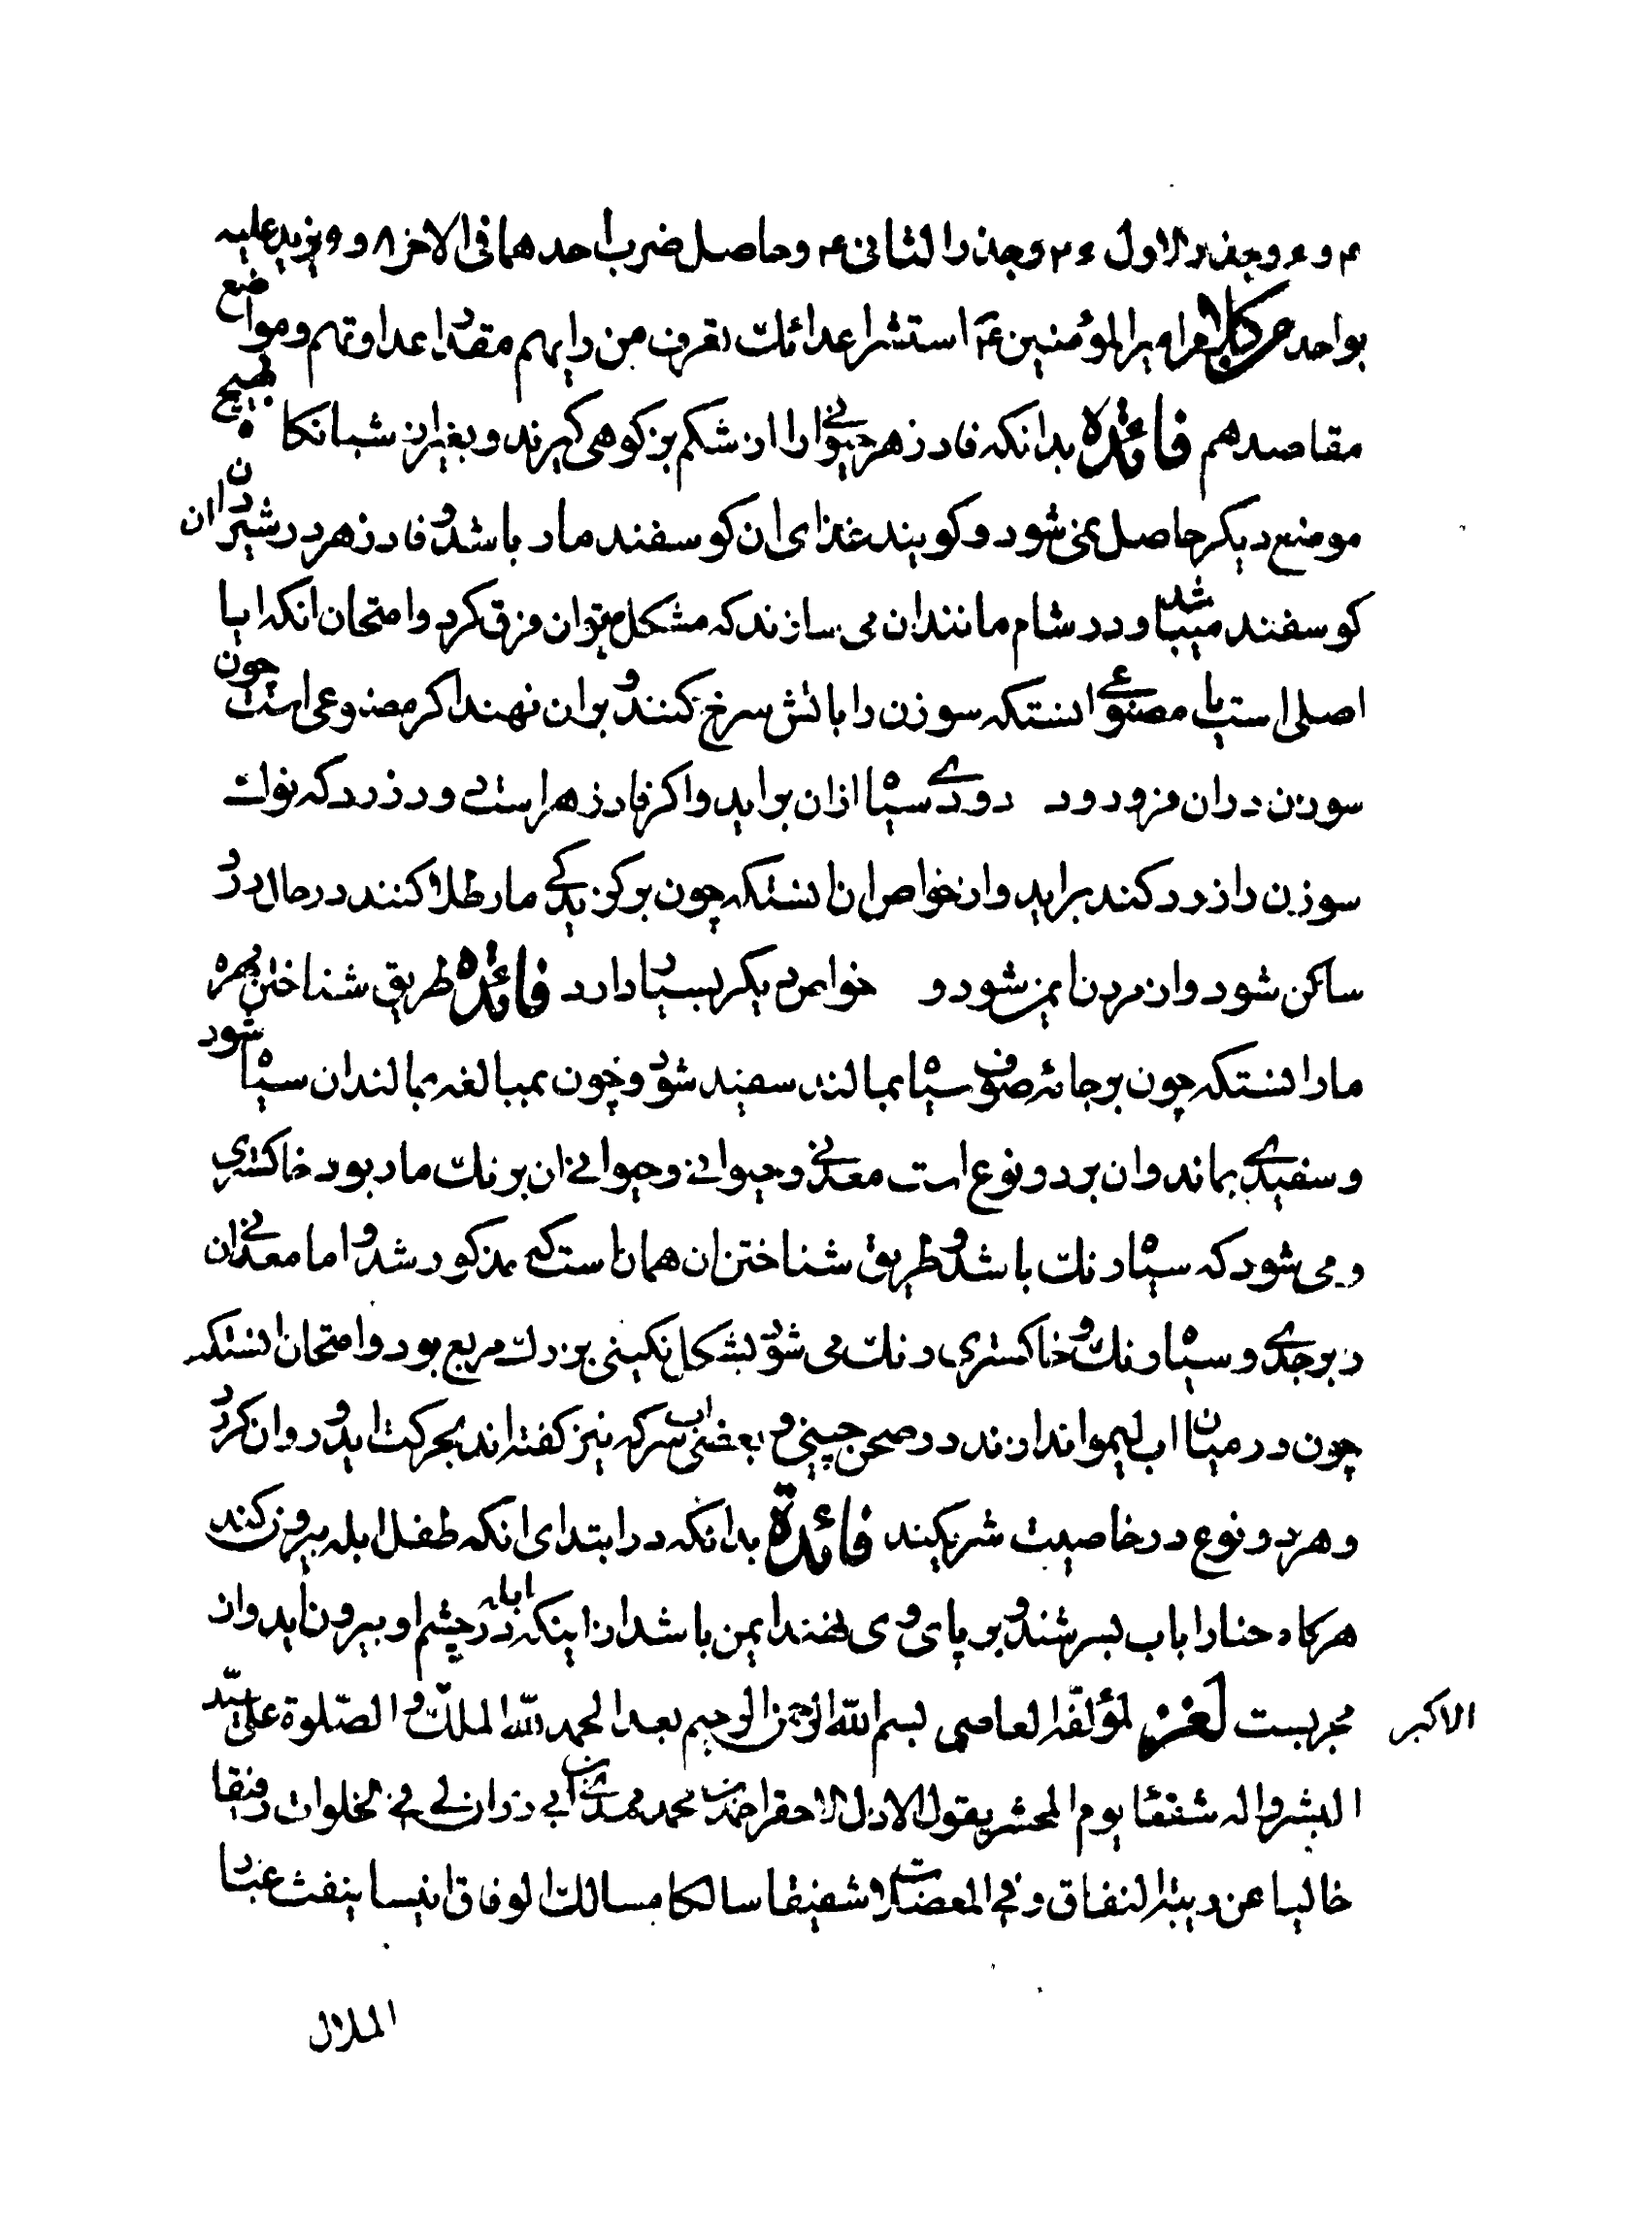 ۴ و ۴ وجذر الاول ۲ وجذر الثانی ۴ وحاصل ضرب احدهما فی الاخر ۸ و ۹ یزید علیه
بواحد من کلام امیر المؤمنین ع استشر اعدائك تعرف من رایهم مقدار عداوتهم ومواضع
مقاصدهم فائدة بدانکه فادزهر حیوانی را از شکم بز کوهی گیرند و بغیر از شبانکا بهیچ
موضع دیکر حاصل نمی شود و کویند غذای ان کوسفند مار باشد و فادزهر در شیردان ان
کوسفند میباشد و در شام مانند ان می سازند که مشکل بتوان فرق کرد و امتحان انکه ایا
اصلی است یا مصنوعی انستکه سوزن را باتش سرخ کنند و بران نهند اکر مصنوعی است چون
سوزن دران فرو رود دودی سیاه ازان براید و اکر فادزهر است دود زرد که نوك
سوزن را زرد کند براید و از خواص ان انستکه چون بر کزیدگی مار طلا کنند در حال درد
ساکن شود و از مردن ایمن شود و خواص دیکر بسیار دارد فائده طریق شناختن مهره
مار انستکه چون بر جامه صوف سیاه بمالند سفید شود و چون بمبالغه بمالند ان سیاه شود
و سفیدی بماند و ان بر دو نوع است معدنی و حیوانی و حیوانی ان برنك مار بود خاکستری
و می شود که سیاه رنك باشد و طریق شناختن ان همان است که مذکور شد و اما معدنی ان
زبرجدی و سیاه رنك و خاکستری رنك می شود بشکل نکینی بزرك مربع بود و امتحان انستکه
چون در میان اب لیمو اندازند در صحن چینی و بعضی اب سرکه نیز کفته اند بحرکت اید و روان کردد
و هر دو نوع در خاصیت شریکند فائدة بدانکه در ابتدای انکه طفل ابله بیرون کند
هرکاه حنا را باب بسرشند و بر پای وی نهند ایمن باشد از اینکه ابله در چشم او بیرون اید و ان
مجربست لغز لمؤلفه العاصی بسم الله الرحمن الرحیم بعد الحمد لله الملك الاکبر و الصلوة علی سید
البشر و اله شفعاء یوم المحشر یقول الاذل الاحقر احمد بن محمد مهدی بن ابی ذر ان لی فی الخلوات رفیقا
خالیا عن ریبة النفاق و فی المعضلات شفیقا سالکا مسالك الوفاق انیسا ینفث عنا
الملال